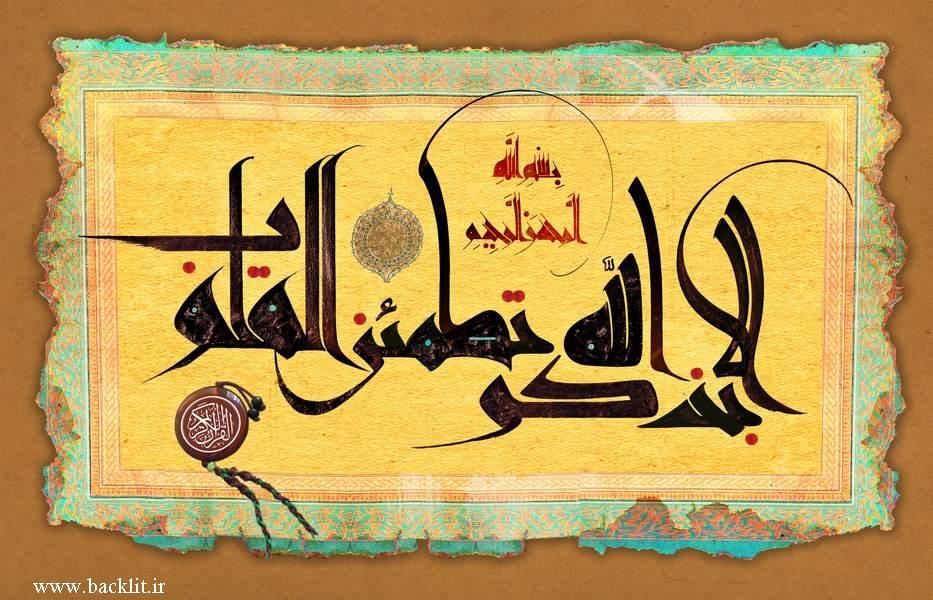 بسم الله
الرحمن الرحيم
الا بذكر الله تطمئن القلوب
القرآن الكريم
www.backlit.ir